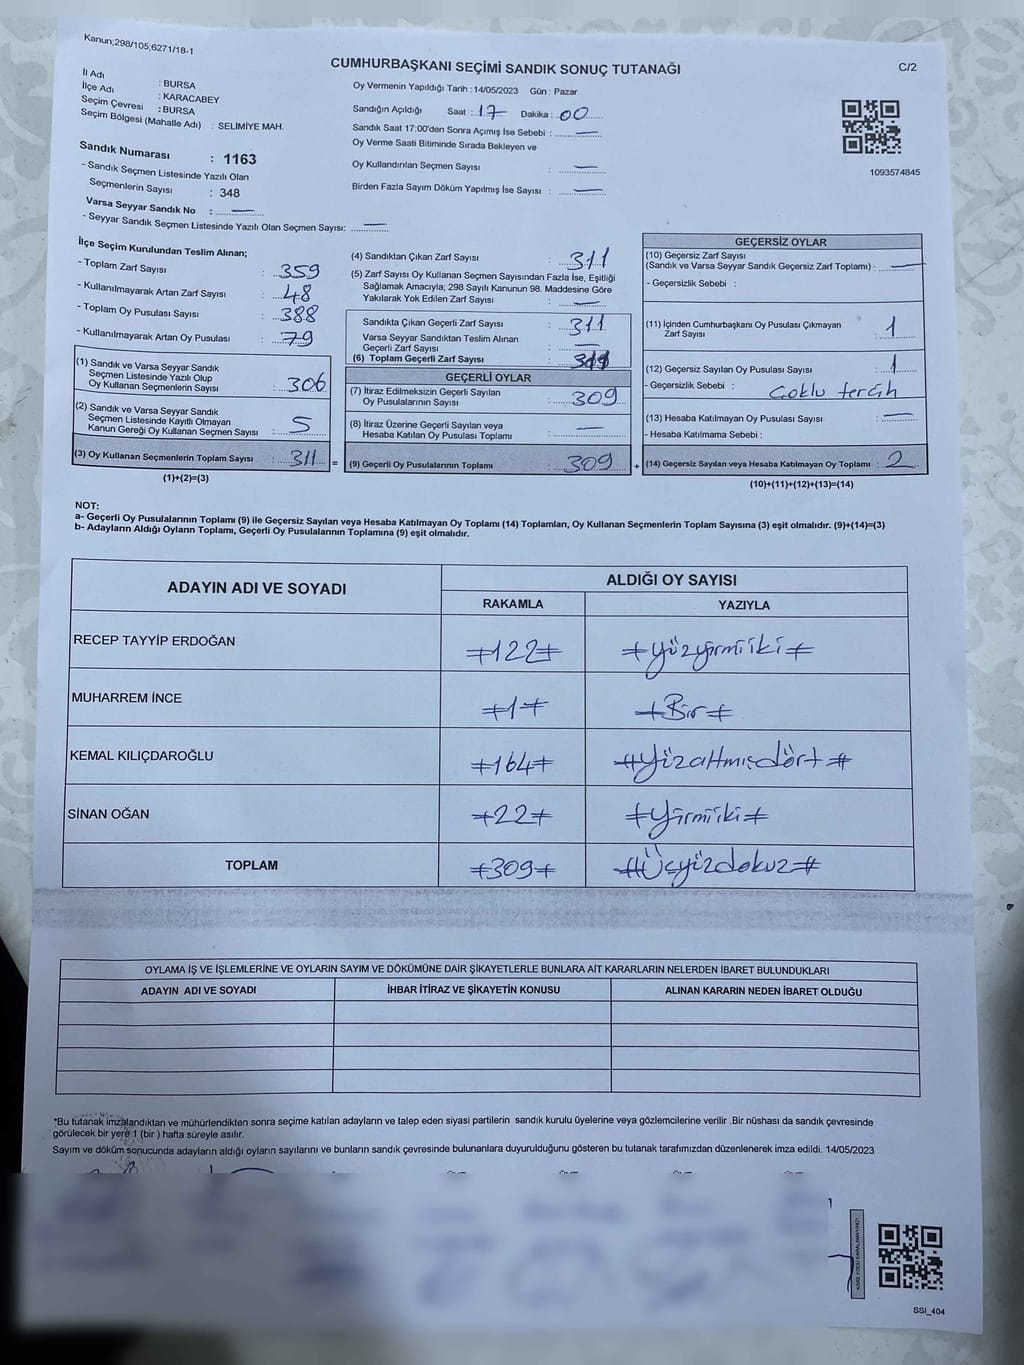 Kanun;298/105;6271/18-1
CUMHURBAŞKANI SEÇİMİ SANDIK SONUÇ TUTANAĞI
C/2
İl Adı : BURSA
İlçe Adı : KARACABEY
Seçim Çevresi : BURSA
Seçim Bölgesi (Mahalle Adı) : SELİMİYE MAH.
Sandık Numarası : 1163
- Sandık Seçmen Listesinde Yazılı Olan
Seçmenlerin Sayısı : 348
Varsa Seyyar Sandık No : —
- Seyyar Sandık Seçmen Listesinde Yazılı Olan Seçmen Sayısı: —
Oy Vermenin Yapıldığı Tarih :14/05/2023 Gün : Pazar
Sandığın Açıldığı Saat : 17 Dakika : 00
Sandık Saat 17:00'den Sonra Açımış İse Sebebi : —
Oy Verme Saati Bitiminde Sırada Bekleyen ve
Oy Kullandırılan Seçmen Sayısı : —
Birden Fazla Sayım Döküm Yapılmış İse Sayısı : —
1093574845
İlçe Seçim Kurulundan Teslim Alınan;
- Toplam Zarf Sayısı : 359
- Kullanılmayarak Artan Zarf Sayısı : 48
- Toplam Oy Pusulası Sayısı : 388
- Kullanılmayarak Artan Oy Pusulası : 79
(1) Sandık ve Varsa Seyyar Sandık
Seçmen Listesinde Yazılı Olup
Oy Kullanan Seçmenlerin Sayısı : 306
(2) Sandık ve Varsa Seyyar Sandık
Seçmen Listesinde Kayıtlı Olmayan
Kanun Gereği Oy Kullanan Seçmen Sayısı : 5
(3) Oy Kullanan Seçmenlerin Toplam Sayısı : 311
(1)+(2)=(3)
(4) Sandıktan Çıkan Zarf Sayısı : 311
(5) Zarf Sayısı Oy Kullanan Seçmen Sayısından Fazla İse, Eşitliği
Sağlamak Amacıyla; 298 Sayılı Kanunun 98. Maddesine Göre
Yakılarak Yok Edilen Zarf Sayısı : —
Sandıkta Çıkan Geçerli Zarf Sayısı : 311
Varsa Seyyar Sandıktan Teslim Alınan
Geçerli Zarf Sayısı : —
(6) Toplam Geçerli Zarf Sayısı : 311
GEÇERLİ OYLAR
(7) İtiraz Edilmeksizin Geçerli Sayılan
Oy Pusulalarının Sayısı : 309
(8) İtiraz Üzerine Geçerli Sayılan veya
Hesaba Katılan Oy Pusulası Toplamı : —
= (9) Geçerli Oy Pusulalarının Toplamı : 309 +
GEÇERSİZ OYLAR
(10) Geçersiz Zarf Sayısı
(Sandık ve Varsa Seyyar Sandık Geçersiz Zarf Toplamı) : —
- Geçersizlik Sebebi :
(11) İçinden Cumhurbaşkanı Oy Pusulası Çıkmayan
Zarf Sayısı : 1
(12) Geçersiz Sayılan Oy Pusulası Sayısı : 1
- Geçersizlik Sebebi : Çoklu tercih
(13) Hesaba Katılmayan Oy Pusulası Sayısı : —
- Hesaba Katılmama Sebebi :
(14) Geçersiz Sayılan veya Hesaba Katılmayan Oy Toplamı : 2
(10)+(11)+(12)+(13)=(14)
NOT:
a- Geçerli Oy Pusulalarının Toplamı (9) ile Geçersiz Sayılan veya Hesaba Katılmayan Oy Toplamı (14) Toplamları, Oy Kullanan Seçmenlerin Toplam Sayısına (3) eşit olmalıdır. (9)+(14)=(3)
b- Adayların Aldığı Oyların Toplamı, Geçerli Oy Pusulalarının Toplamına (9) eşit olmalıdır.
ADAYIN ADI VE SOYADI ALDIĞI OY SAYISI
RAKAMLA YAZIYLA
RECEP TAYYİP ERDOĞAN #122# #yüzyirmiiki#
MUHARREM İNCE #1# #Bir#
KEMAL KILIÇDAROĞLU #164# #yüzaltmışdört#
SİNAN OĞAN #22# #yirmiiki#
TOPLAM #309# #Üçyüzdokuz#
OYLAMA İŞ VE İŞLEMLERİNE VE OYLARIN SAYIM VE DÖKÜMÜNE DAİR ŞİKAYETLERLE BUNLARA AİT KARARLARIN NELERDEN İBARET BULUNDUKLARI
ADAYIN ADI VE SOYADI İHBAR İTİRAZ VE ŞİKAYETİN KONUSU ALINAN KARARIN NEDEN İBARET OLDUĞU
*Bu tutanak imzalandıktan ve mühürlendikten sonra seçime katılan adayların ve talep eden siyasi partilerin sandık kurulu üyelerine veya gözlemcilerine verilir .Bir nüshası da sandık çevresinde
görülecek bir yere 1 (bir ) hafta süreyle asılır.
Sayım ve döküm sonucunda adayların aldığı oyların sayılarını ve bunların sandık çevresinde bulunanlara duyurulduğunu gösteren bu tutanak tarafımızdan düzenlenerek imza edildi. 14/05/2023
SSI_404